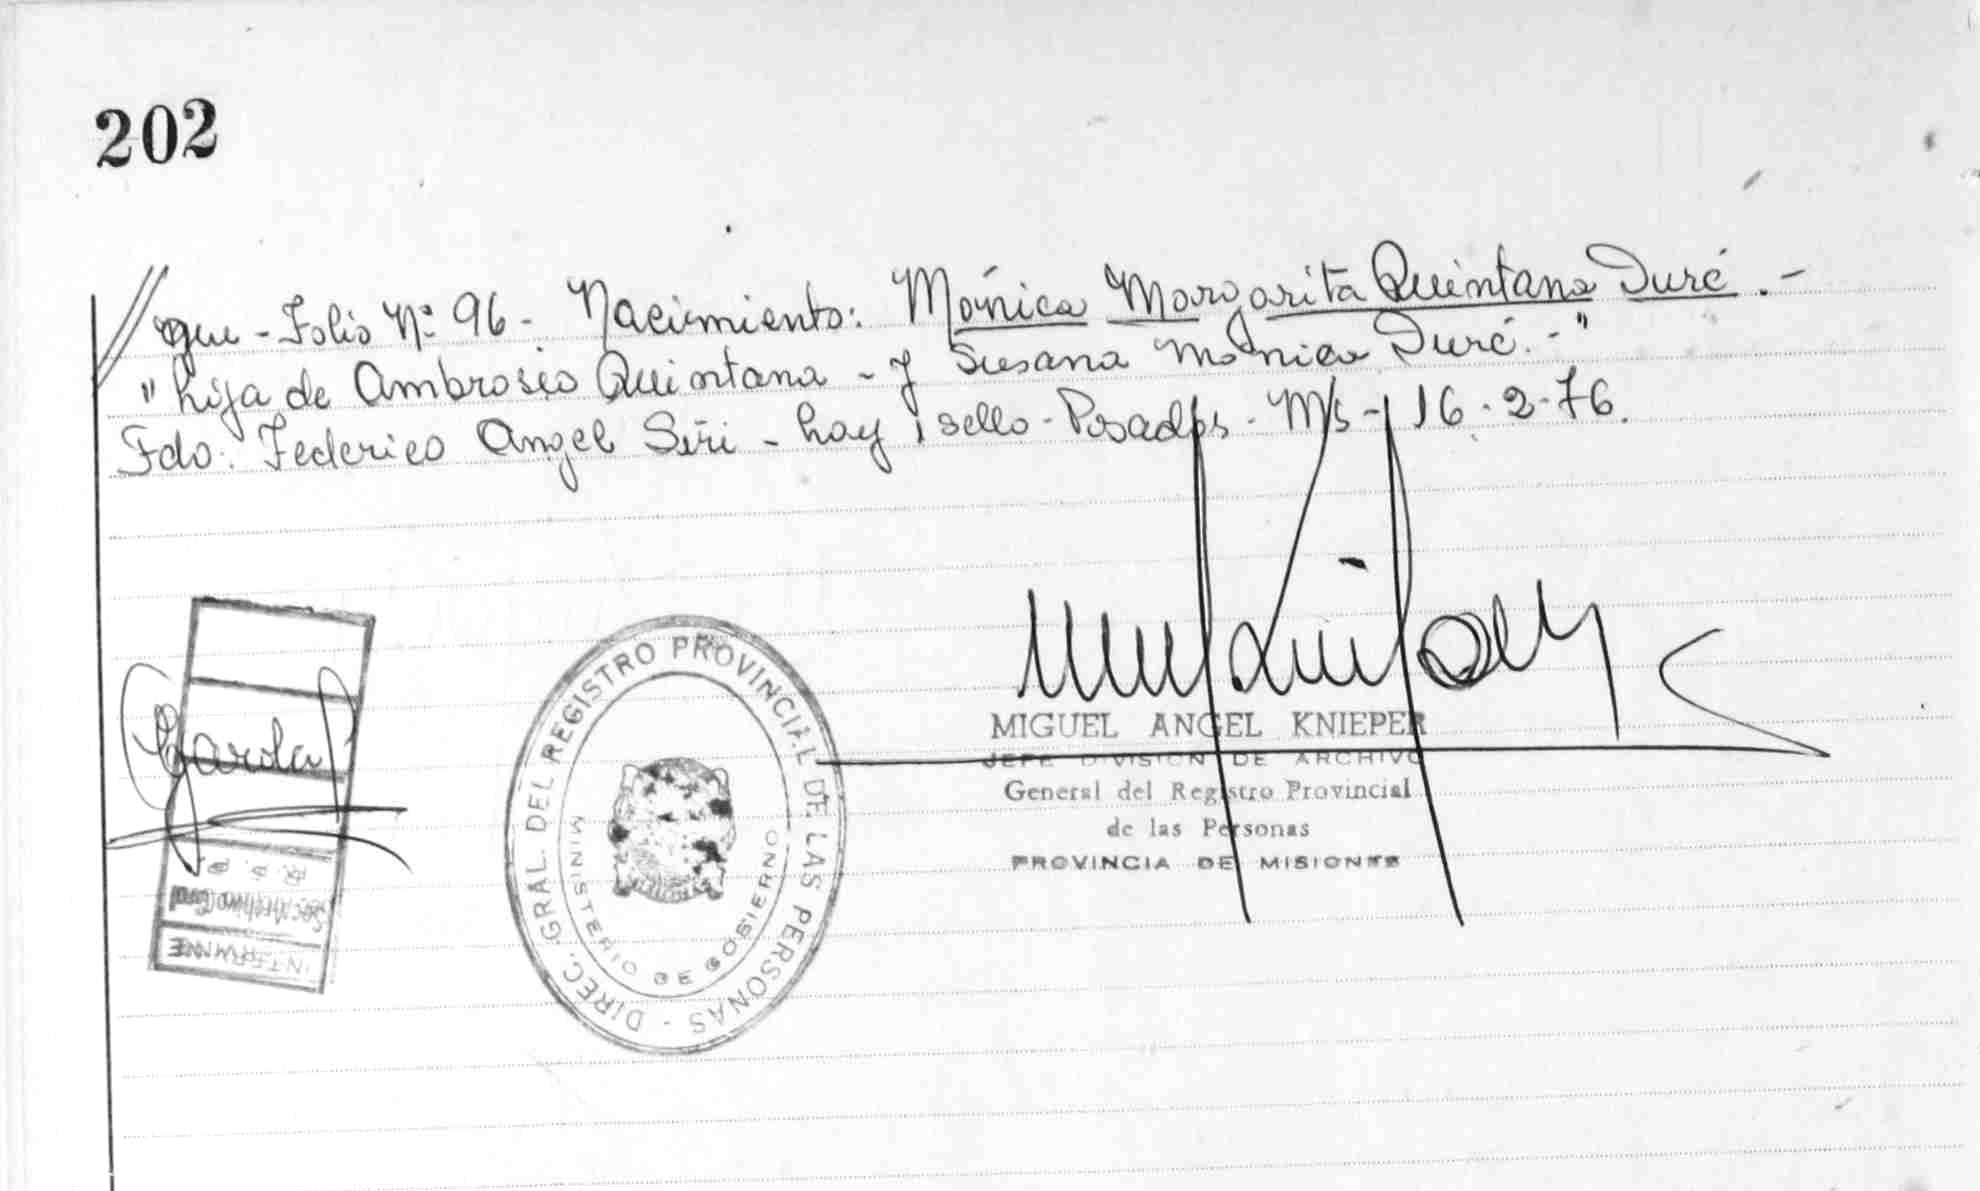 202
//que - Folio Nº 96 - Nacimiento: Mónica Margarita Quintana Duré. -
"hija de Ambrosio Quintana - y Susana Mónica Duré. -"
Fdo: Federico Angel Siri - hay 1 sello - Posadas - Ms - 16-2-76.
DIREC. GRAL. DEL REGISTRO PROVINCIAL DE LAS PERSONAS -
MINISTERIO DE GOBIERNO
MIGUEL ANGEL KNIEPER
JEFE DIVISION DE ARCHIVO
General del Registro Provincial
de las Personas
PROVINCIA DE MISIONES
R. P. P.
INTERVINE